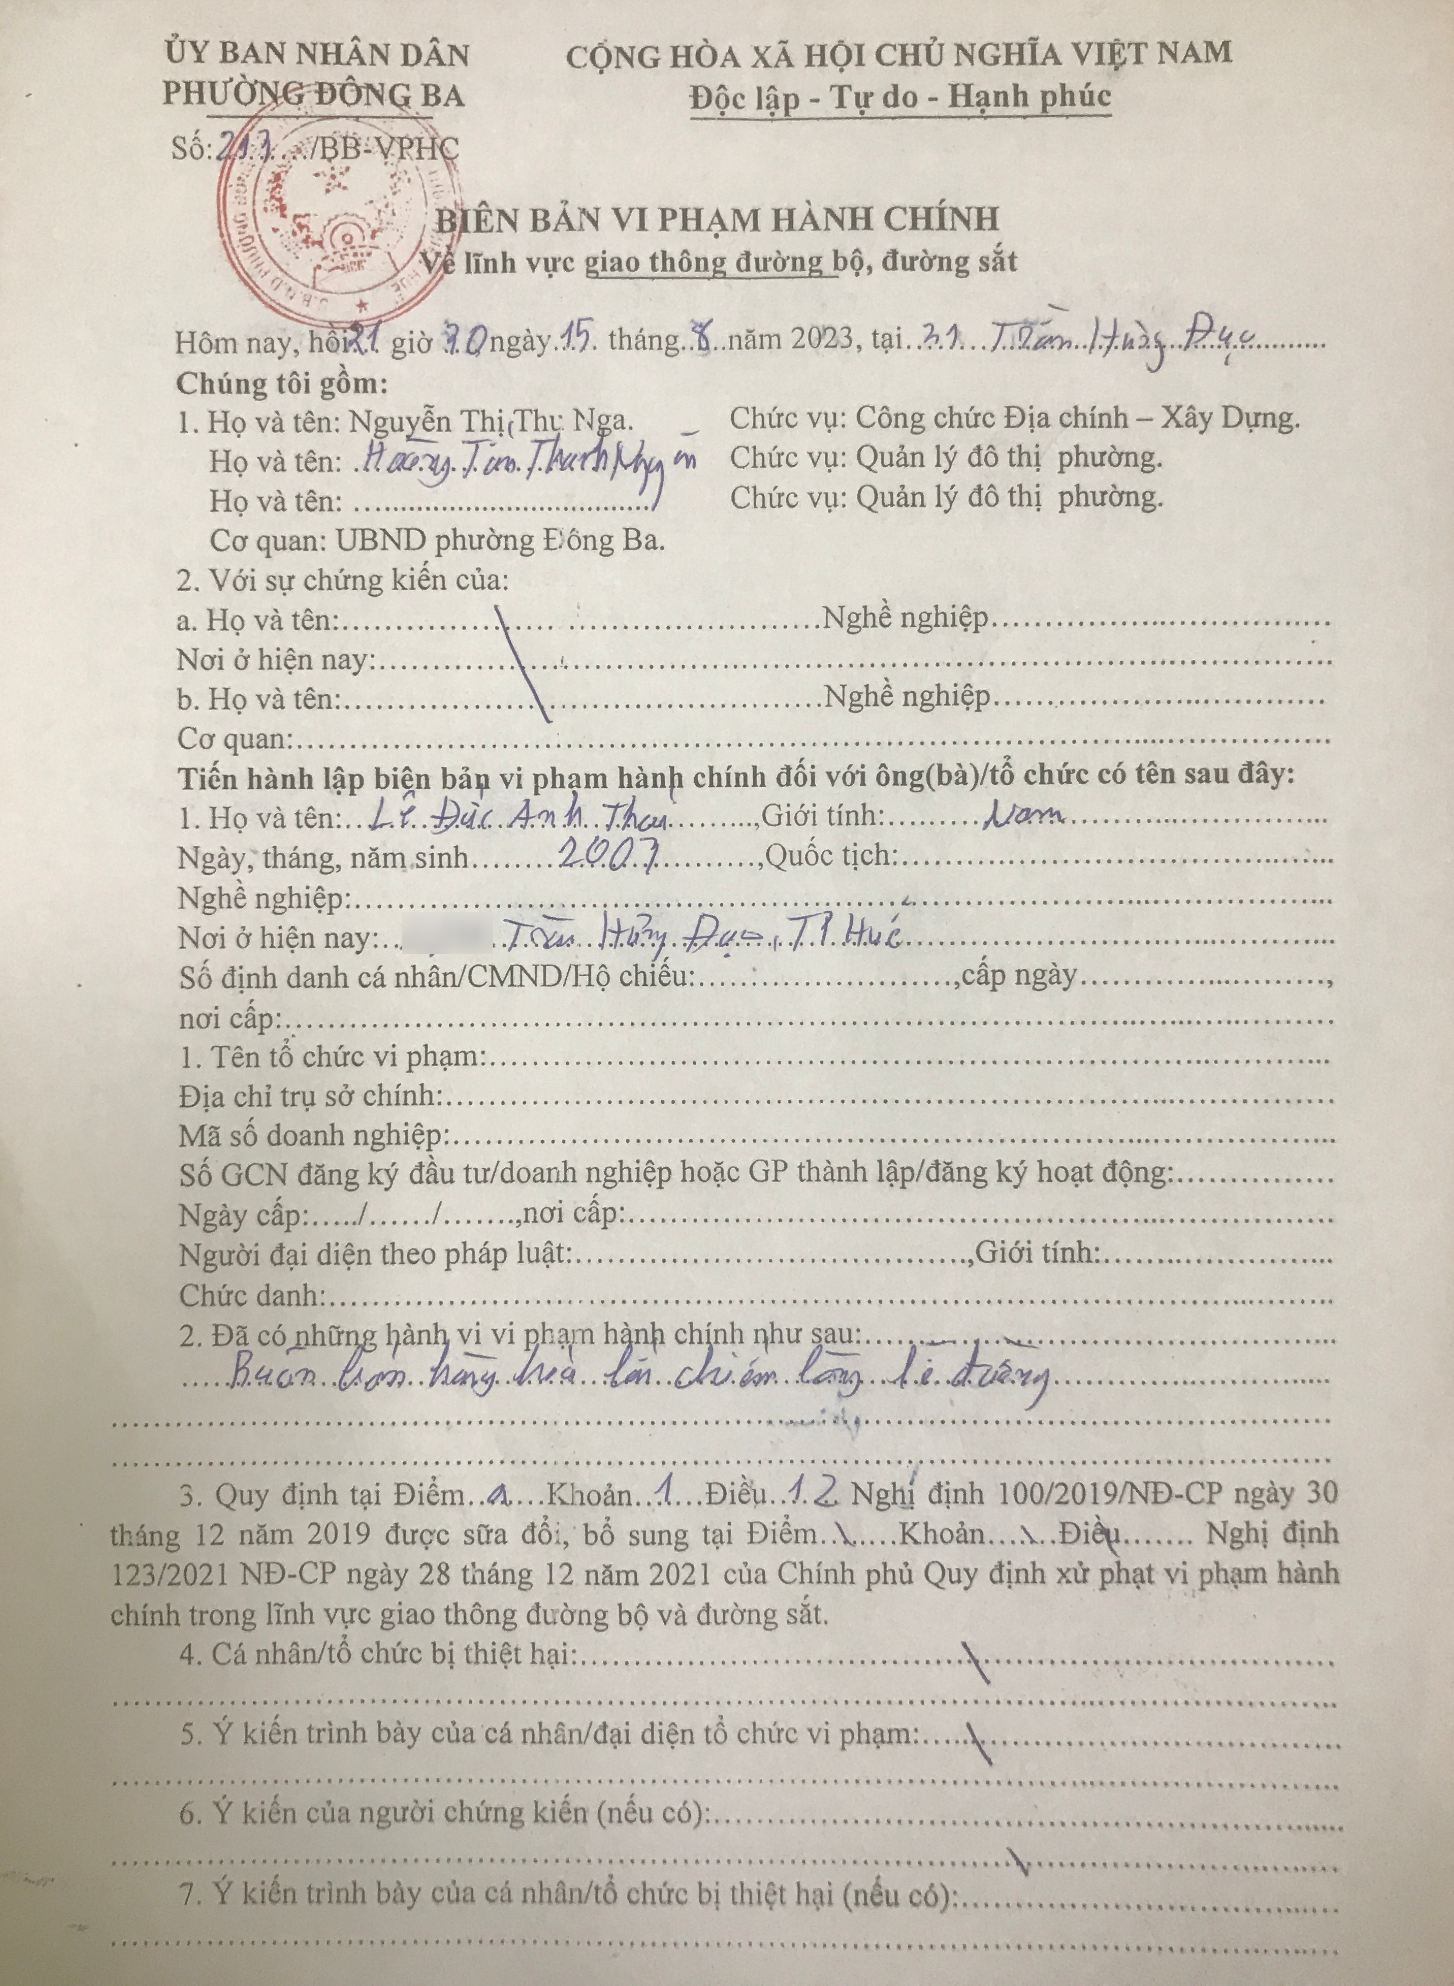 ỦY BAN NHÂN DÂN
PHƯỜNG ĐÔNG BA
CỘNG HÒA XÃ HỘI CHỦ NGHĨA VIỆT NAM
Độc lập - Tự do - Hạnh phúc
Số:217..../BB-VPHC
BIÊN BẢN VI PHẠM HÀNH CHÍNH
Về lĩnh vực giao thông đường bộ, đường sắt
Hôm nay, hồi 21 giờ 30 ngày 15 tháng 8 năm 2023, tại 31 Trần Hưng Đạo
Chúng tôi gồm:
1. Họ và tên: Nguyễn Thị Thu Nga. Chức vụ: Công chức Địa chính – Xây Dựng.
Họ và tên: Hoàng Tôn Thanh Nguyên Chức vụ: Quản lý đô thị phường.
Họ và tên: .................................... Chức vụ: Quản lý đô thị phường.
Cơ quan: UBND phường Đông Ba.
2. Với sự chứng kiến của:
a. Họ và tên:....................Nghề nghiệp....................
Nơi ở hiện nay:....................
b. Họ và tên:....................Nghề nghiệp....................
Cơ quan:....................
Tiến hành lập biên bản vi phạm hành chính đối với ông(bà)/tổ chức có tên sau đây:
1. Họ và tên: Lê Đức Anh Thái ,Giới tính: Nam
Ngày, tháng, năm sinh 2007 ,Quốc tịch:....................
Nghề nghiệp:....................
Nơi ở hiện nay: Trần Hưng Đạo, TP Huế
Số định danh cá nhân/CMND/Hộ chiếu:....................,cấp ngày....................,
nơi cấp:....................
1. Tên tổ chức vi phạm:....................
Địa chỉ trụ sở chính:....................
Mã số doanh nghiệp:....................
Số GCN đăng ký đầu tư/doanh nghiệp hoặc GP thành lập/đăng ký hoạt động:...............
Ngày cấp:...../....../.......,nơi cấp:....................
Người đại diện theo pháp luật:....................,Giới tính:....................
Chức danh:....................
2. Đã có những hành vi vi phạm hành chính như sau:....................
Buôn bán hàng hoá lấn chiếm lòng lề đường
3. Quy định tại Điểm a Khoản 1 Điều 12 Nghị định 100/2019/NĐ-CP ngày 30
tháng 12 năm 2019 được sữa đổi, bổ sung tại Điểm..\.....Khoản...\...Điều....... Nghị định
123/2021 NĐ-CP ngày 28 tháng 12 năm 2021 của Chính phủ Quy định xử phạt vi phạm hành
chính trong lĩnh vực giao thông đường bộ và đường sắt.
4. Cá nhân/tổ chức bị thiệt hại:....................
5. Ý kiến trình bày của cá nhân/đại diện tổ chức vi phạm:....................
6. Ý kiến của người chứng kiến (nếu có):....................
7. Ý kiến trình bày của cá nhân/tổ chức bị thiệt hại (nếu có):....................